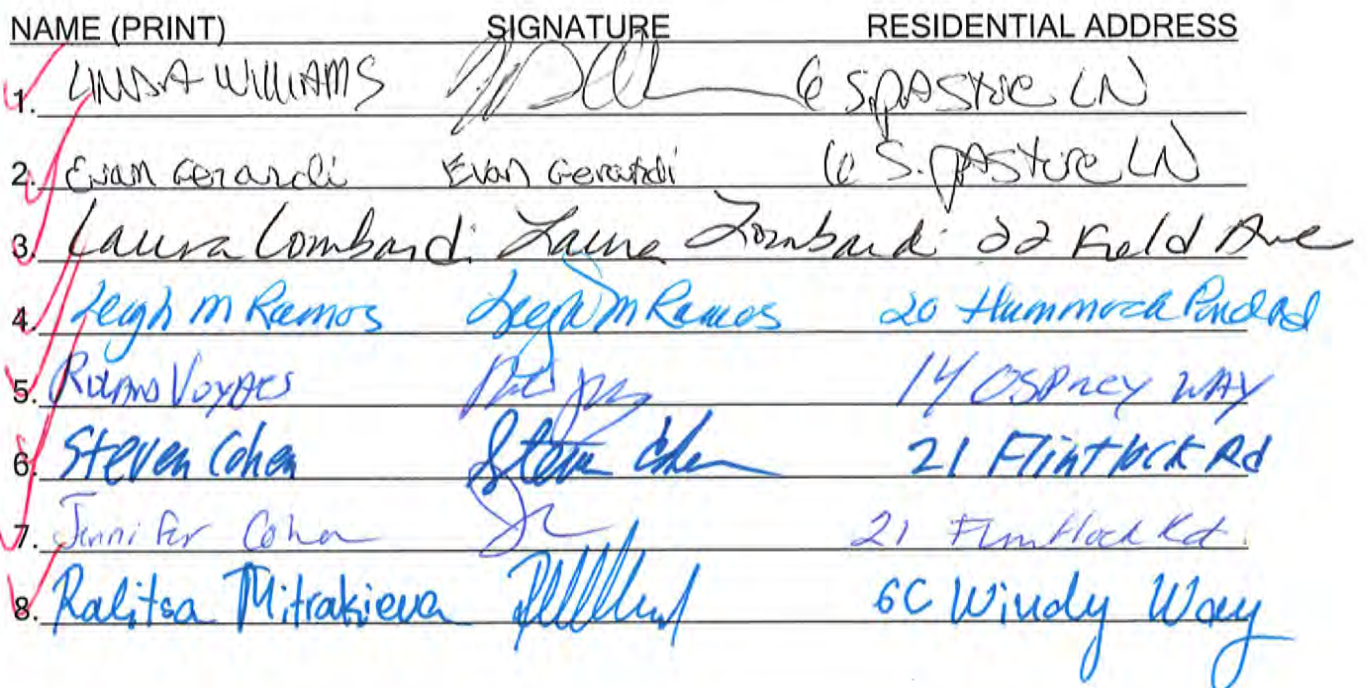 NAME (PRINT) SIGNATURE RESIDENTIAL ADDRESS
1. LINDA WILLIAMS 6 S. PASTURE LN
2. Evan Gerardi Evan Gerardi 6 S. PASTURE LN
3. Laura Lombardi Laura Lombardi 22 Field Ave
4. Leigh M Ramos Leigh M Ramos 20 Hummock Pond Rd
5. 14 OSPREY WAY
6. Steven Cohen Steven Cohen 21 Flintlock Rd
7. Jennifer Cohen 21 Flintlock Rd.
8. Ralitsa Mitrakieva 6C Windy Way